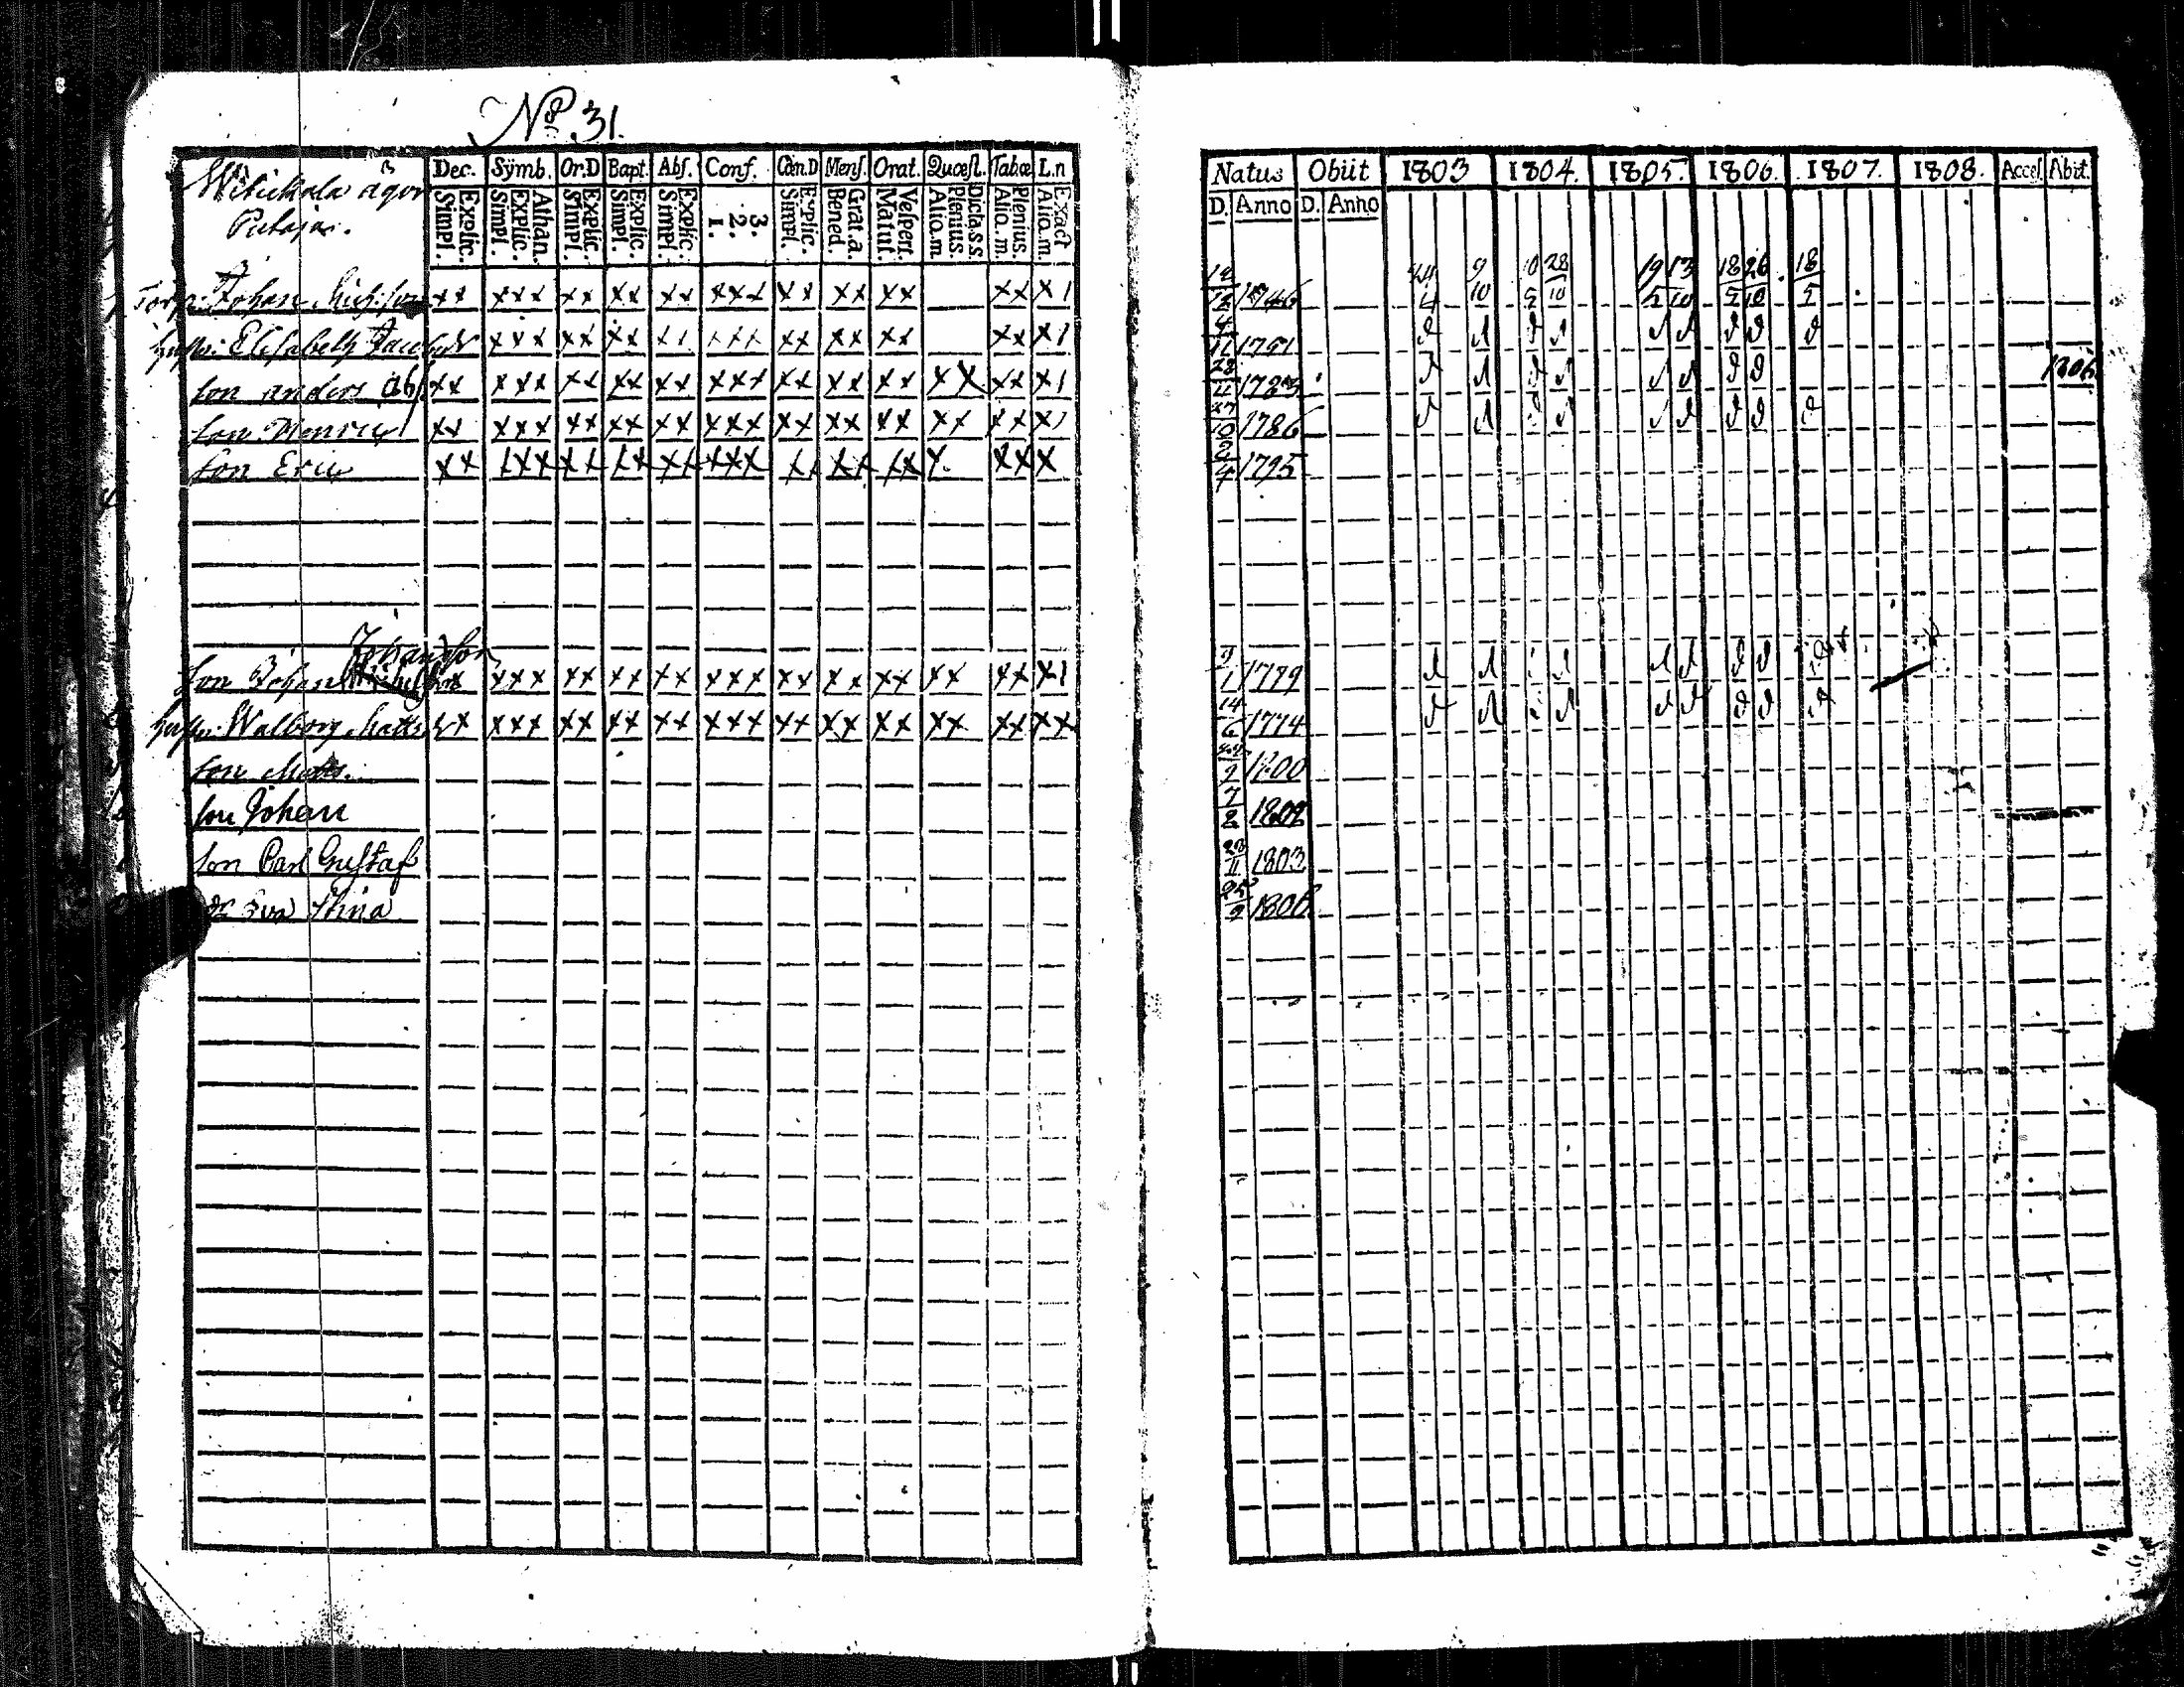 No. 31.
Dec. Symb. Or.D Bapt. Abſ. Conf. Cœn.D Menſ. Orat. Quæſt. Tab.œ L.n
Explic. Simpl. Athan. Explic. Simpl. Explic. Simpl. Explic. Simpl. Explic. Simpl. 3. 2. 1. Explic. Simpl. Grat.a. Bened. Veſpert. Matut. Dicta.s.s Plenius. Alio.m Plenius. Alio.m. Exact Alio.m.
Johan xx xxx xx xx xx xxx xx xx xx xx x1
Eliſabeth xxx xx xx xx xxx xx xx xx xx x1
ſon anders abſ xx xxx xx xx xx xxx xx xx xx xx xx x1
ſon Henric xx xxx xx xx xx xxx xx xx xx xx xx x1
ſon Eric xx xxx xx xx xx xxx xx xx xx x xx x
Johansſon
ſon Johan xxx xx xx xx xxx xx xx xx xx xx x1
Walborg Matts xx xxx xx xx xx xxx xx xx xx xx xx xx
ſon Matts.
ſon Johan
ſon Carl Guſtaf
Eva Stina
Natus Obiit 1803 1804. 1805. 1806. 1807. 1808. Acceſ. Abiit.
D. Anno D. Anno
12/12 1746 24/4 9/10 10/5 28/10 19/5 13/10 18/5 26/10 18/5
4/11 1751
28/11 1783 1806
27/10 1786
2/4 1795
9/1 1779
14/6 1774
1800
7/2 1802
23/11 1803
25/2 1806